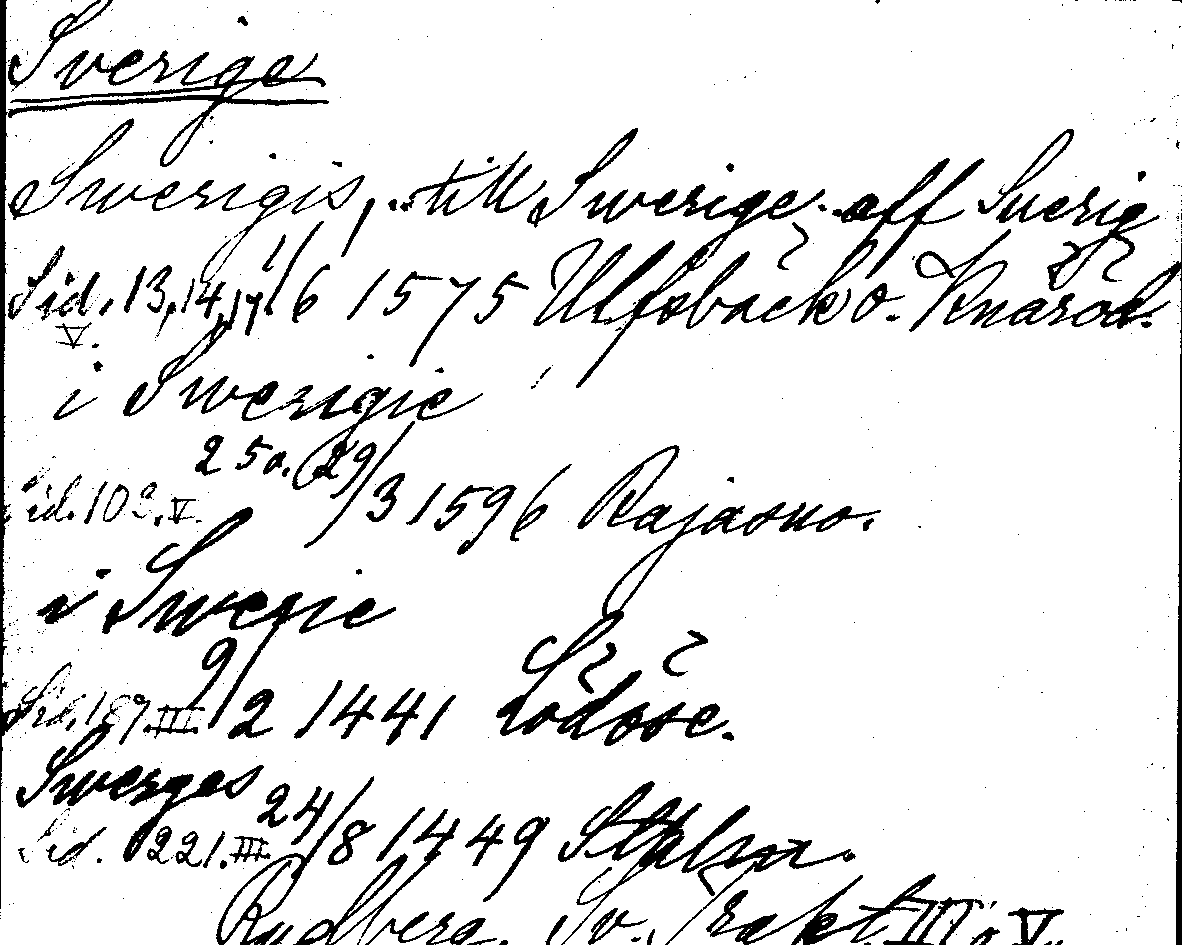 Sverige
Swerigis, .. till Swerige .. aff Swerig
Sid. 13, 14, 17. 1/6 1575 Ulfsbäck o. Knäröd.
V.
i Swerigie
25 o. 29/3 1596
Sid. 102. V.
i Swerie
Sid. 187. III. 9/2 1441 Lödöse.
Swerges
Sid. 221. III. 24/8 1449
Rydberg, Sv. Trakt. III o V.